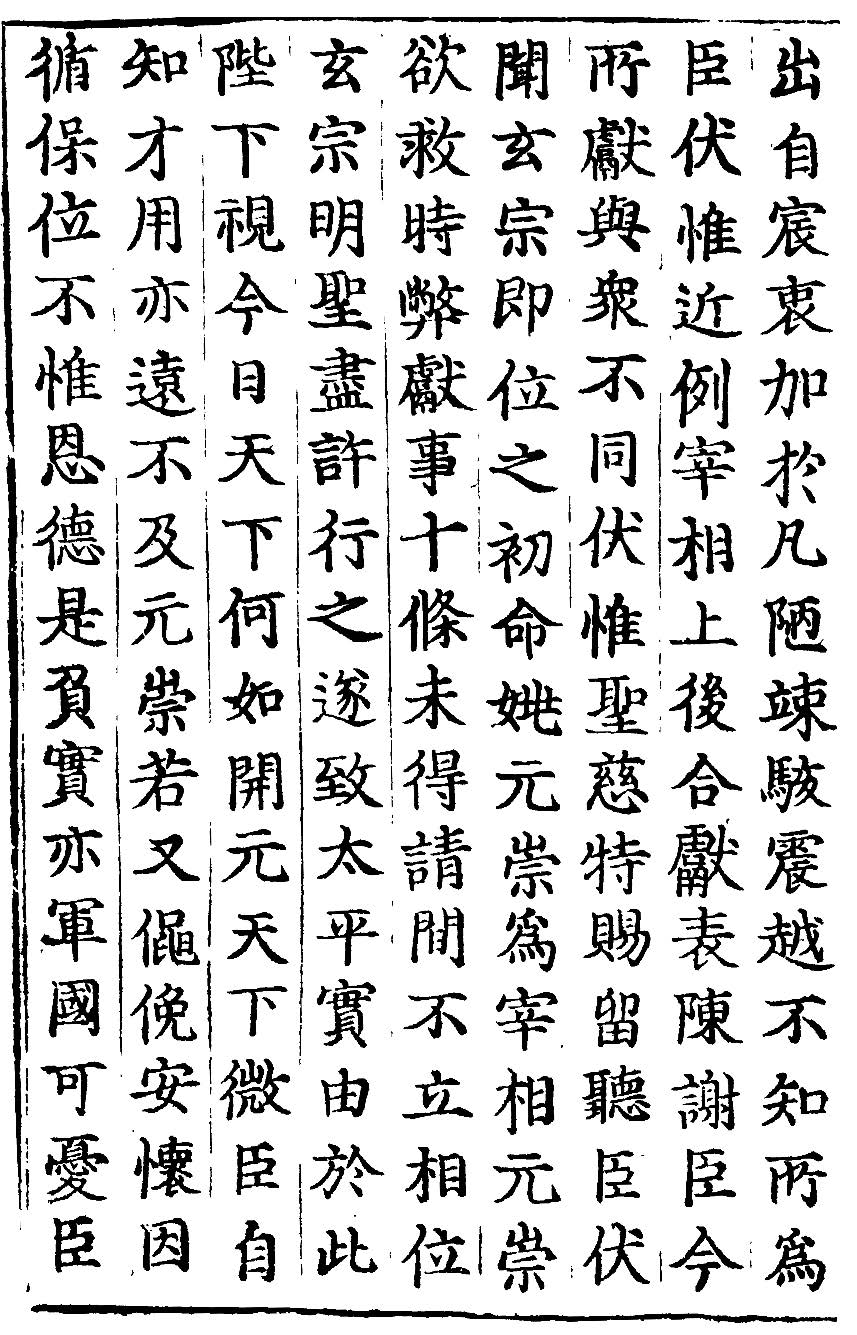 出自宸衷加於凡陋竦駭震越不知所爲
臣伏惟近例宰相上後合獻表陳謝臣今
所獻與衆不同伏惟聖慈特賜留聽臣伏
聞玄宗即位之初命姚元崇爲宰相元崇
欲救時弊獻事十條未得請間不立相位
玄宗明聖盡許行之遂致太平實由於此
陛下視今日天下何如開元天下微臣自
知才用亦遠不及元崇若又僶俛安懷因
循保位不惟恩德是負實亦軍國可憂臣